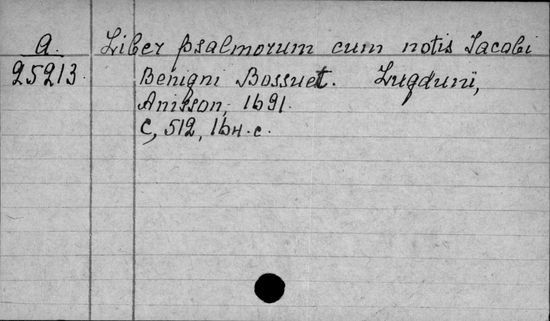 A.
25213.
Liber psalmorum cum notis Iacobi
Benigni Bossuet. Lugduni,
Anisson, 1691.
C, 512, 16н. с.